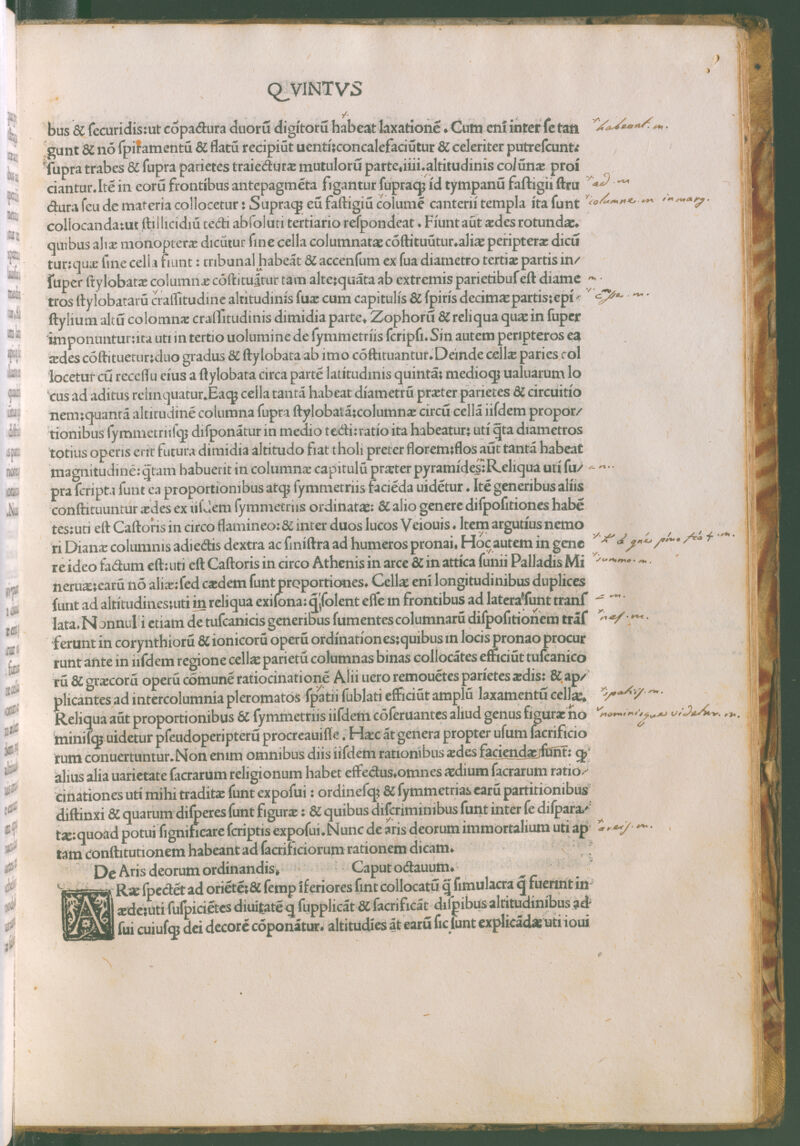 Q VINTVS
bus & ſecuridis:ut cōpactura duorū digitorū habeat laxationē. Cum eni inter ſe tan
gunt & nō ſpiramentū & flatū recipiūt uenti:concalefaciūtur & celeriter putreſcunt:
ſupra trabes & ſupra parietes traiecturæ mutulorū parte.iiii.altitudinis colūnæ proi
ciantur.Itē in eorū frontibus antepagmēta figantur ſupraq; id tympanū faſtigii ſtru
ctura ſeu de materia collocetur: Supraq; eū faſtigiū columē canterii templa ita ſunt
collocanda:ut ſtillicidiū tecti abſoluti tertiario reſpondeat. Fiunt aūt ædes rotundæ.
quibus aliæ monopteræ dicūtur ſine cella columnatæ cōſtituūtur.aliæ peripteræ dicū
tur:quæ ſine cella fiunt: tribunal habeāt & accenſum ex ſua diametro tertiæ partis in/
ſuper ſtylobatæ columnæ cōſtituātur tam alte:quāta ab extremis parietibuſ eſt diame
tros ſtylobatarū craſſitudine altitudinis ſuæ cum capitulis & ſpiris decimæ partis:epi
ſtylium altū colomnæ craſſitudinis dimidia parte. Zophorū & reliqua quæ in ſuper
imponuntur:ita uti in tertio uolumine de ſymmetriis ſcripſi.Sin autem peripteros ea
ædes cōſtituetur:duo gradus & ſtylobata ab imo cōſtituantur.Deinde cellæ paries col
locetur cū receſſu eius a ſtylobata circa partē latitudinis quintā: medioq; ualuarum lo
cus ad aditus relinquatur.Eaq; cella tantā habeat diametrū præter parietes & circuitio
nem:quantā altitudinē columna ſupra ſtylobatā:columnæ circū cellā iiſdem propor/
tionibus ſymmetriiſq; diſponātur in medio tecti:ratio ita habeatur: uti q̄ta diametros
totius operis erit futura dimidia altitudo fiat tholi preter florem:flos aūt tantā habeat
magnitudinē:q̄tam habuerit in columnæ capitulū præter pyramides:Reliqua uti ſu/
pra ſcripta ſunt ea proportionibus atq; ſymmetriis faciēda uidētur. Itē generibus aliis
conſtituuntur ædes ex iiſdem ſymmetriis ordinatæ: & alio genere diſpoſitiones habē
tes:uti eſt Caſtoris in circo flamineo:& inter duos lucos Veiouis. Item argutius nemo
ri Dianæ columnis adiectis dextra ac ſiniſtra ad humeros pronai. Hoc autem in gene
re ideo factum eſt:uti eſt Caſtoris in circo Athenis in arce & in attica ſunii Palladis Mi
neruæ:earū nō aliæ:ſed eædem ſunt proportiones. Cellæ eni longitudinibus duplices
ſunt ad altitudines:uti in reliqua exiſona: q̄ ſolent eſſe in frontibus ad latera ſunt tranſ
lata.Nonnulli etiam de tuſcanicis generibus ſumentes columnarū diſpoſitionem trāſ
ferunt in corynthiorū & ionicorū operū ordinationes:quibus in locis pronao procur
runt ante in iiſdem regione cellæ parietū columnas binas collocātes efficiūt tuſcanico
rū & græcorū operū cōmunē ratiocinationē Alii uero remouētes parietes ædis: & ap/
plicantes ad intercolumnia pleromatos ſpatii ſublati efficiūt amplū laxamentū cellæ.
Reliqua aūt proportionibus & ſymmetriis iiſdem cōſeruantes aliud genus figuræ no
miniſq; uidetur pſeudoperipterū procreauiſſe. Hæc āt genera propter uſum ſacrificio
rum conuertuntur.Non enim omnibus diis iiſdem rationibus ædes faciendæ ſunt: q
alius alia uarietate ſacrarum religionum habet effectus.omnes ædium ſacrarum ratio/
cinationes uti mihi traditæ ſunt expoſui: ordineſq; & ſymmetrias earū partitionibus
diſtinxi & quarum diſperes ſunt figuræ: & quibus diſcriminibus ſunt inter ſe diſpara/
tæ:quoad potui ſignificare ſcriptis expoſui.Nunc de aris deorum immortalium uti ap
tam conſtitutionem habeant ad ſacrificiorum rationem dicam.
De Aris deorum ordinandis. Caput octauum.
A Ræ ſpectēt ad oriētē:& ſemp iferiores ſint collocatū q̄ ſimulacra q̄ fuerint in
æde:uti ſuſpiciētes diuitatē q ſupplicāt & ſacrificāt diſpibus altitudinibus ad
ſui cuiuſq; dei decorē cōponātur. altitudies āt earū ſic ſunt explicādæ uti ioui
habeant. m.
ad m
columne. m in marg.
summo. m.
nes. m.
spatij. m.
nominisque videtur. m.
areis. m.